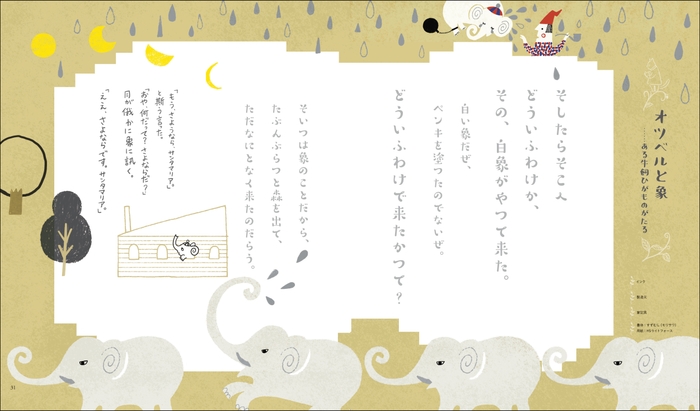 オツベルと象
――ある牛飼ひがものがたる
そしたらそこへ
どういふわけか、
その、白象がやつて来た。
白い象だぜ、
ペンキを塗つたのでないぜ。
どういふわけで来たかつて?
そいつは象のことだから、
たぶんぶらつと森を出て、
ただなにとなく来たのだらう。
「もう、さようなら、サンタマリア。」
と斯う言つた。
「おや、何だつて?さよならだ?」
月が俄かに象に訊く。
「ええ、さよならです。サンタマリア。」
31